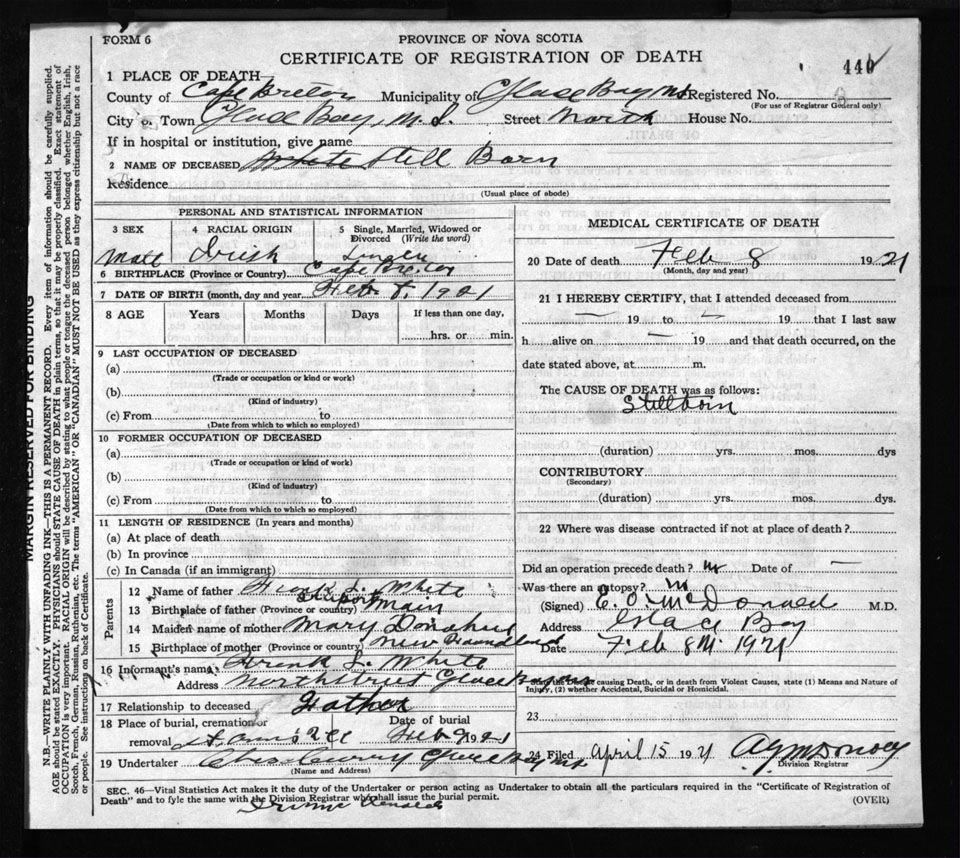 FORM 6
PROVINCE OF NOVA SCOTIA
CERTIFICATE OF REGISTRATION OF DEATH
440
1 PLACE OF DEATH
County of Cape Breton Municipality of Glace Bay NS Registered No.
(For use of Registrar General only)
City or Town Glace Bay, N. S. Street North House No.
If in hospital or institution, give name
2 NAME OF DECEASED White Still Born
Residence
(Usual place of abode)
PERSONAL AND STATISTICAL INFORMATION
3 SEX
4 RACIAL ORIGIN
5 Single, Married, Widowed or Divorced (Write the word)
Male Irish Single
6 BIRTHPLACE (Province or Country) Cape Breton
7 DATE OF BIRTH (month, day and year) Feb 8, 1921
8 AGE Years Months Days If less than one day,
hrs. or min.
9 LAST OCCUPATION OF DECEASED
(a)
(Trade or occupation or kind or work)
(b)
(Kind of industry)
(c) From to
(Date from which to which so employed)
10 FORMER OCCUPATION OF DECEASED
(a)
(Trade or occupation or kind of work)
(b)
(Kind of industry)
(c) From to
(Date from which to which so employed)
11 LENGTH OF RESIDENCE (In years and months)
(a) At place of death
(b) In province
(c) In Canada (if an immigrant)
Parents
12 Name of father Frank L. White
13 Birthplace of father (Province or country) Main
14 Maiden name of mother Mary Donahue
15 Birthplace of mother (Province or country) New Foundland
16 Informant's name Frank L. White
Address North Street Glace Bay NS
17 Relationship to deceased Father
18 Place of burial, cremation or removal St. Anns Date of burial Feb 9 1921
19 Undertaker Glace Bay NS
(Name and Address)
MEDICAL CERTIFICATE OF DEATH
20 Date of death Feb 8 1921
(Month, day and year)
21 I HEREBY CERTIFY, that I attended deceased from
19 to 19 that I last saw
h alive on 19 and that death occurred, on the
date stated above, at m.
The CAUSE OF DEATH was as follows:
Stillborn
(duration) yrs. mos. dys
CONTRIBUTORY
(Secondary)
(duration) yrs. mos. dys.
22 Where was disease contracted if not at place of death?
Did an operation precede death? no Date of —
Was there an autopsy? no
(Signed) E. O. McDonald M.D.
Address Glace Bay
Date Feb 8th 1921
State the Disease causing Death, or in death from Violent Causes, state (1) Means and Nature of Injury, (2) whether Accidental, Suicidal or Homicidal.
23
24 Filed April 15 1921
Division Registrar
SEC. 46—Vital Statistics Act makes it the duty of the Undertaker or person acting as Undertaker to obtain all the particulars required in the "Certificate of Registration of
Death" and to fyle the same with the Division Registrar who shall issue the burial permit.
(OVER)
MARGIN RESERVED FOR BINDING
N.B.—WRITE PLAINLY, WITH UNFADING INK—THIS IS A PERMANENT RECORD. Every item of information should be carefully supplied.
AGE should be stated EXACTLY. PHYSICIANS should STATE CAUSE OF DEATH in plain terms, so that it may be properly classified. Exact statement of
OCCUPATION is very important. RACIAL ORIGIN will be described by stating to what people or tongue the deceased person belonged whether English, Irish,
Scotch, French, German, Russian, Ruthenian, etc. The terms "AMERICAN" OR "CANADIAN" MUST NOT BE USED as they express citizenship but not a race
or people. See instructions on back of Certificate.